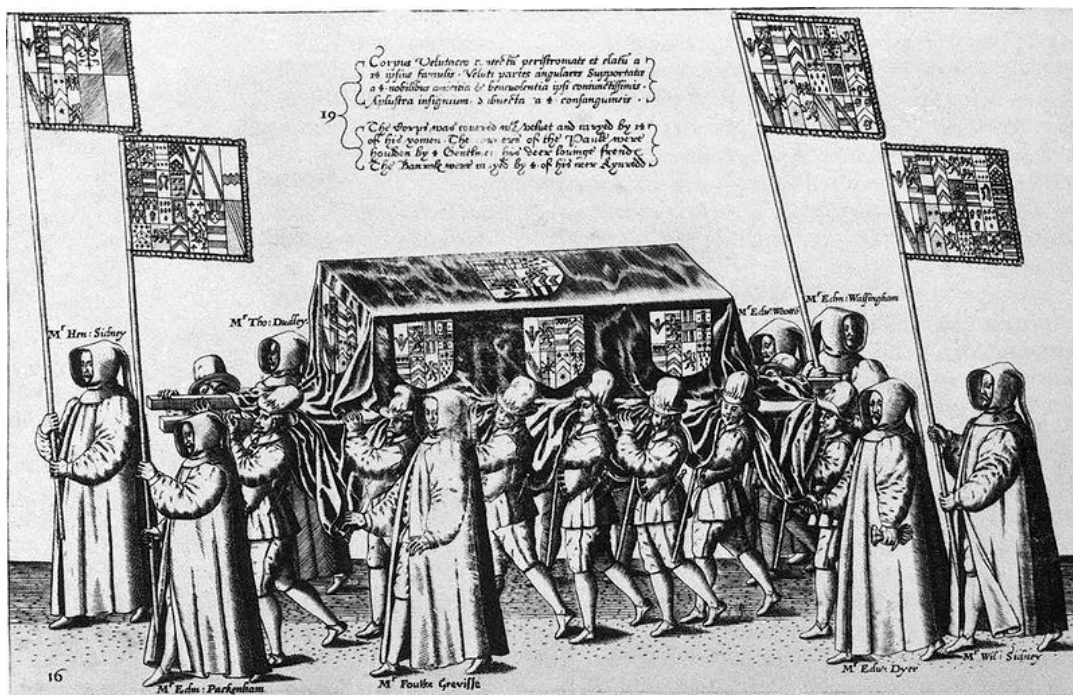 Corpus Velutaceo contectū peristromate et elatū a
14 ipsius famulis. Veluti partes angulares Supportatæ
a 4. nobilibus amicitia & benevolentia ipsi coniunctissimis.
Aplustra insignium. a 4. consanguineis.
19
The Corps was couered wth Veluet and caryed by 14
of his yomen. The of the Paule were
houlden by 4 Gentlmen his deer louinge frends
The Banrolls were caryed by 4. of his neer Kynred
Mr Hen: Sidney
Mr Tho: Dudley
Mr Edw: Wotto
Mr Edm: Walsingham
16
Mr Edm: Packenham
Mr Foulke Greville
Mr Edw Dyer
Mr Wil: Sidney